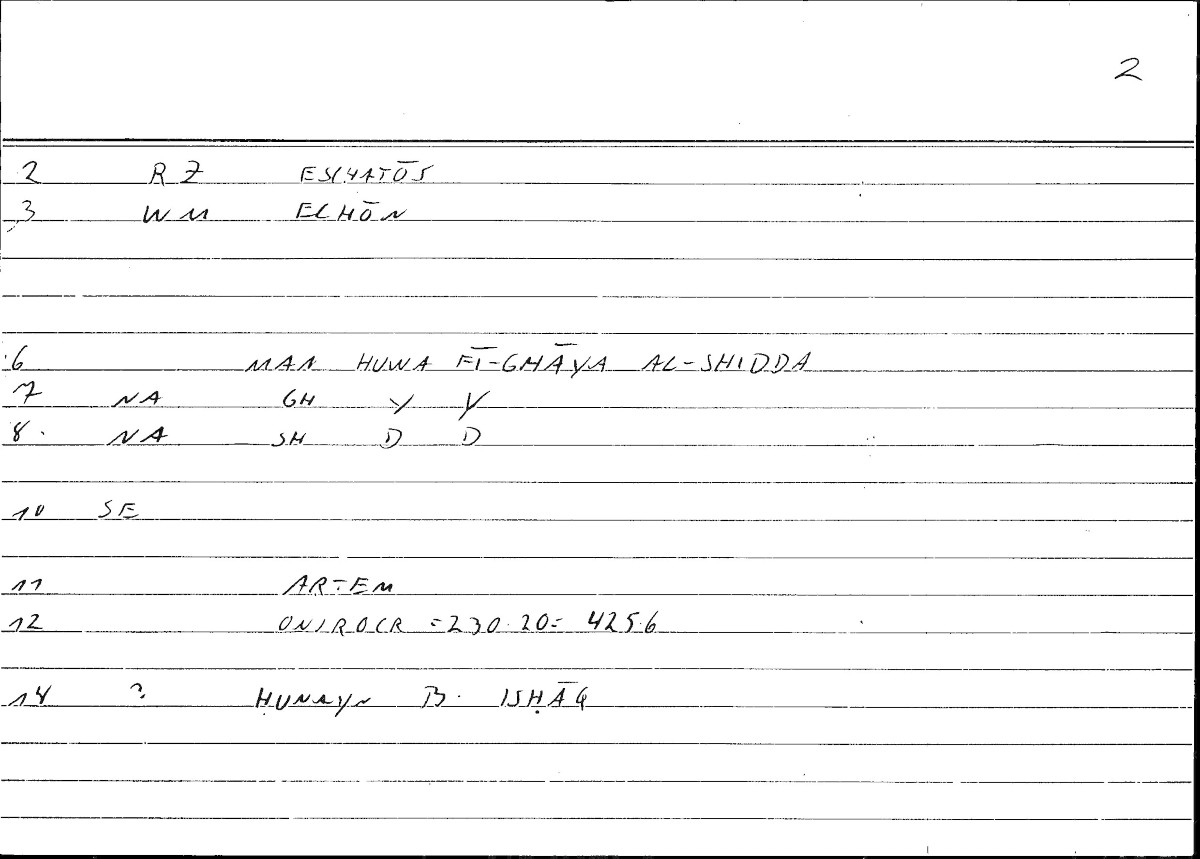 2
2 RZ ESCHATŌS
3 WM ECHŌN
6 MAN HUWA FĪ-GHĀYA AL-SHIDDA
7 NA GH Y Y
8. NA SH D D
10 SE
11 ARTEM
12 ONIROCR = 230.20 = 425.6
14 ? ḤUNAYN B. ISḤĀQ